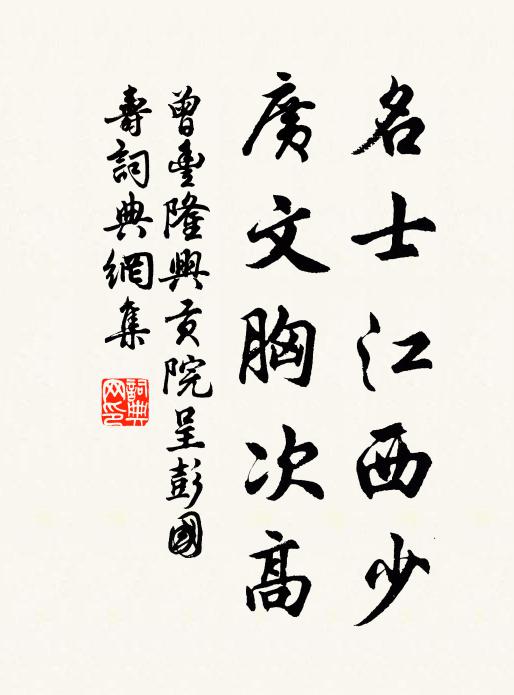 名士江西少
廣文胸次高
曾豐隆興貢院呈彭國
壽詞典網集
詞典
网印